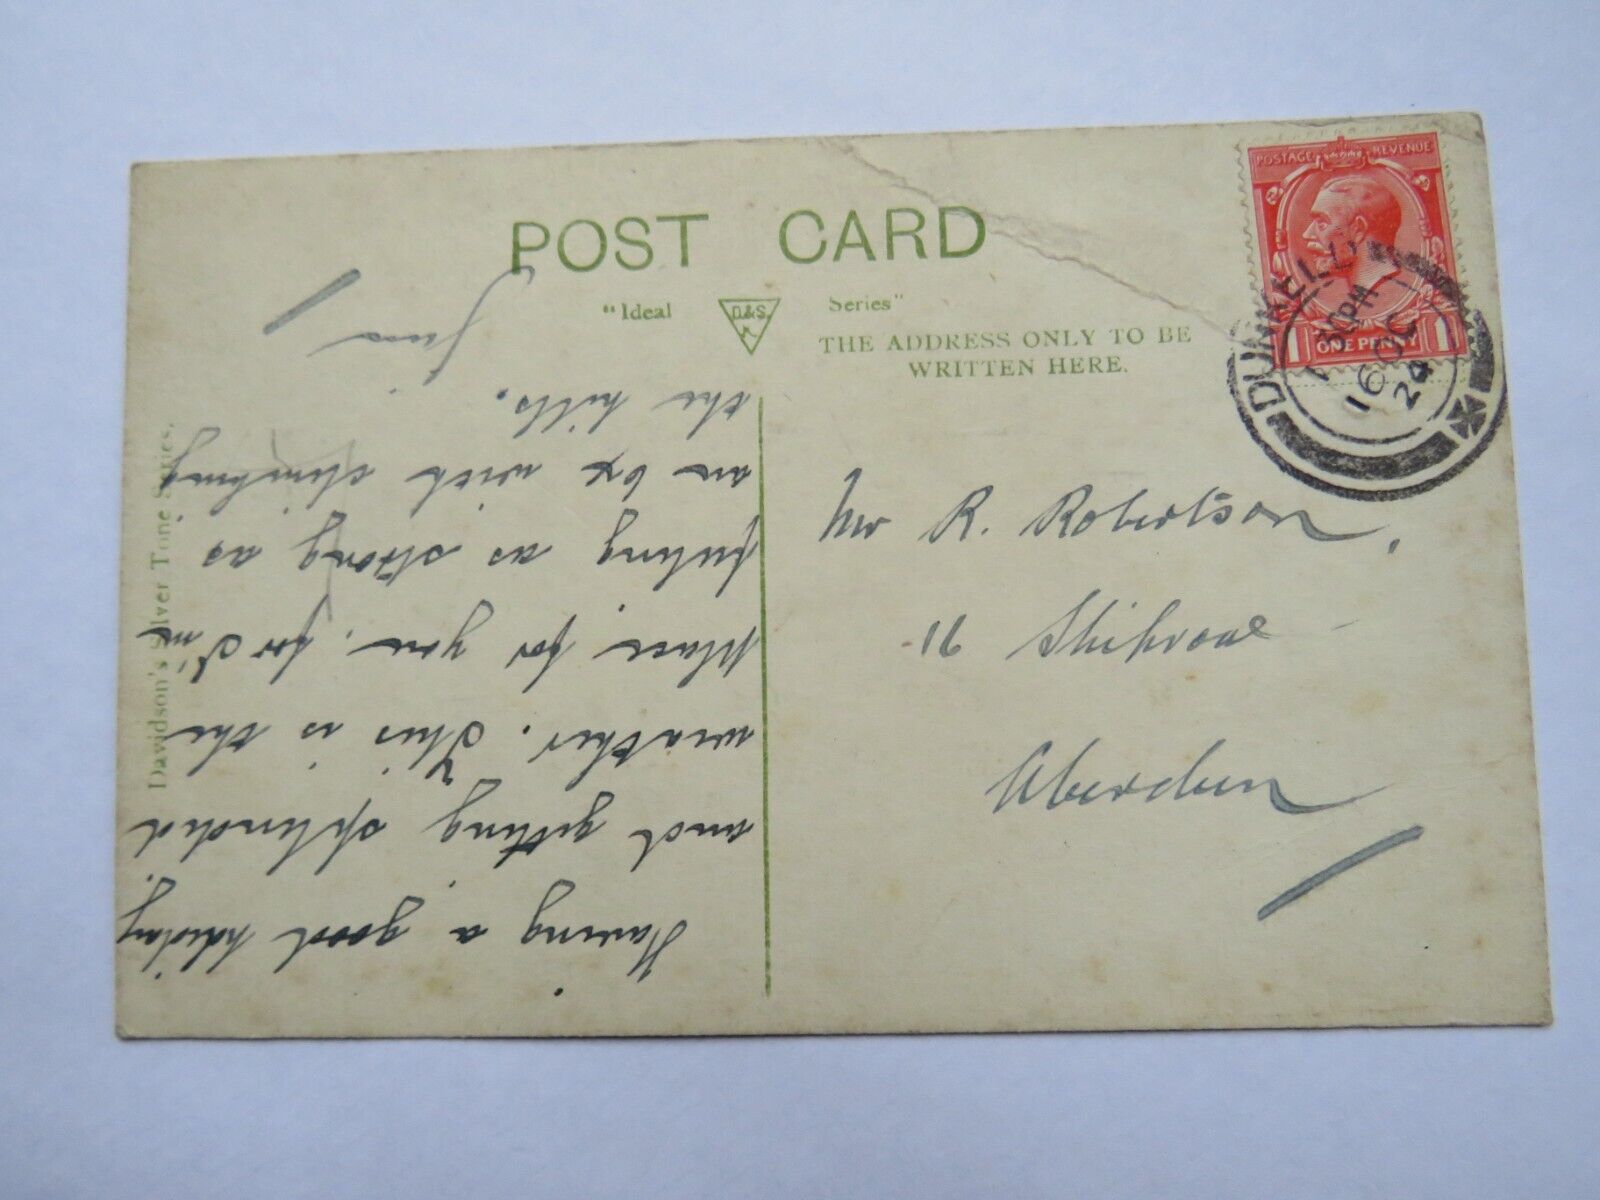 POST CARD
"Ideal D.&S.K. Series"
THE ADDRESS ONLY TO BE
WRITTEN HERE.
POSTAGE REVENUE
1 ONE PENNY 1
DUNKELD
30 PM
16 OC
24
Mr R. Robertson,
16 Shiprow
Aberdeen
Having a good holiday,
and getting splendid
weather. This is the
place for you, for I'm
feeling as strong as
an ox with climbing
the hills.
Davidson's Silver Tone Series.